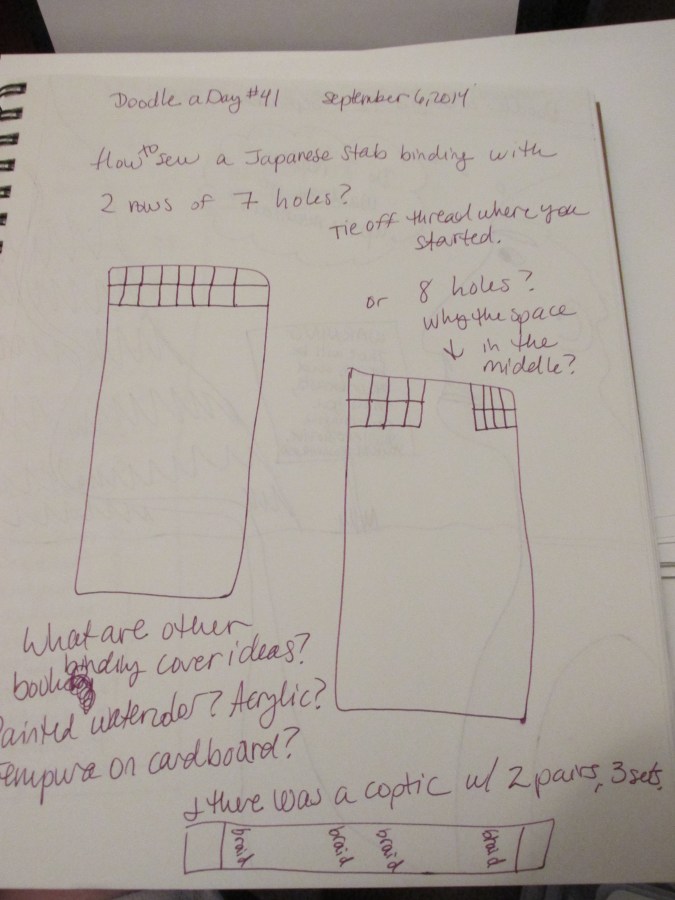 Doodle a Day #41 September 6, 2014
How to sew a Japanese stab binding with
2 rows of 7 holes?
Tie off thread where you
started.
or 8 holes?
Why the space
↓ in the
middle?
What are other
book binding cover ideas?
Painted watercolor? Acrylic?
Tempura on cardboard?
& there was a coptic w/ 2 pairs, 3 sets,
braid braid braid braid